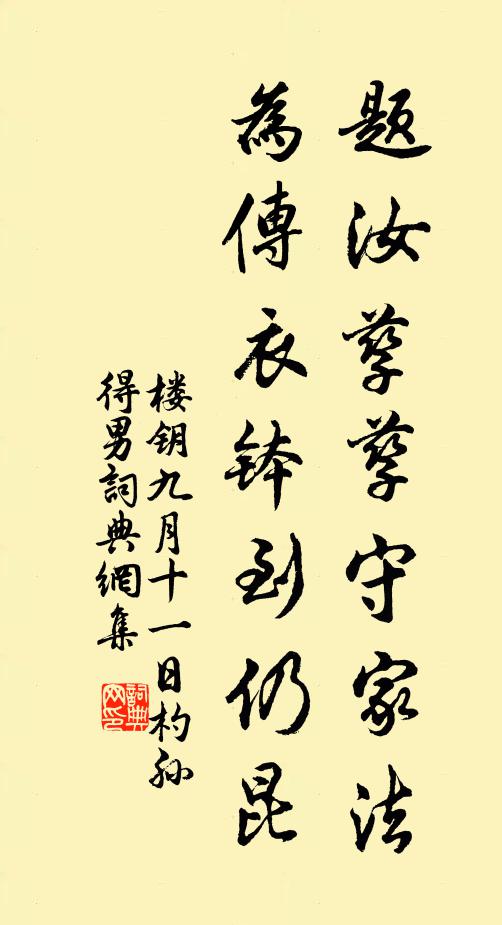 題汝孳孳守家法
為傳衣缽到仍昆
楼钥九月十一日杓孙
得男詞典網集
詞典网印